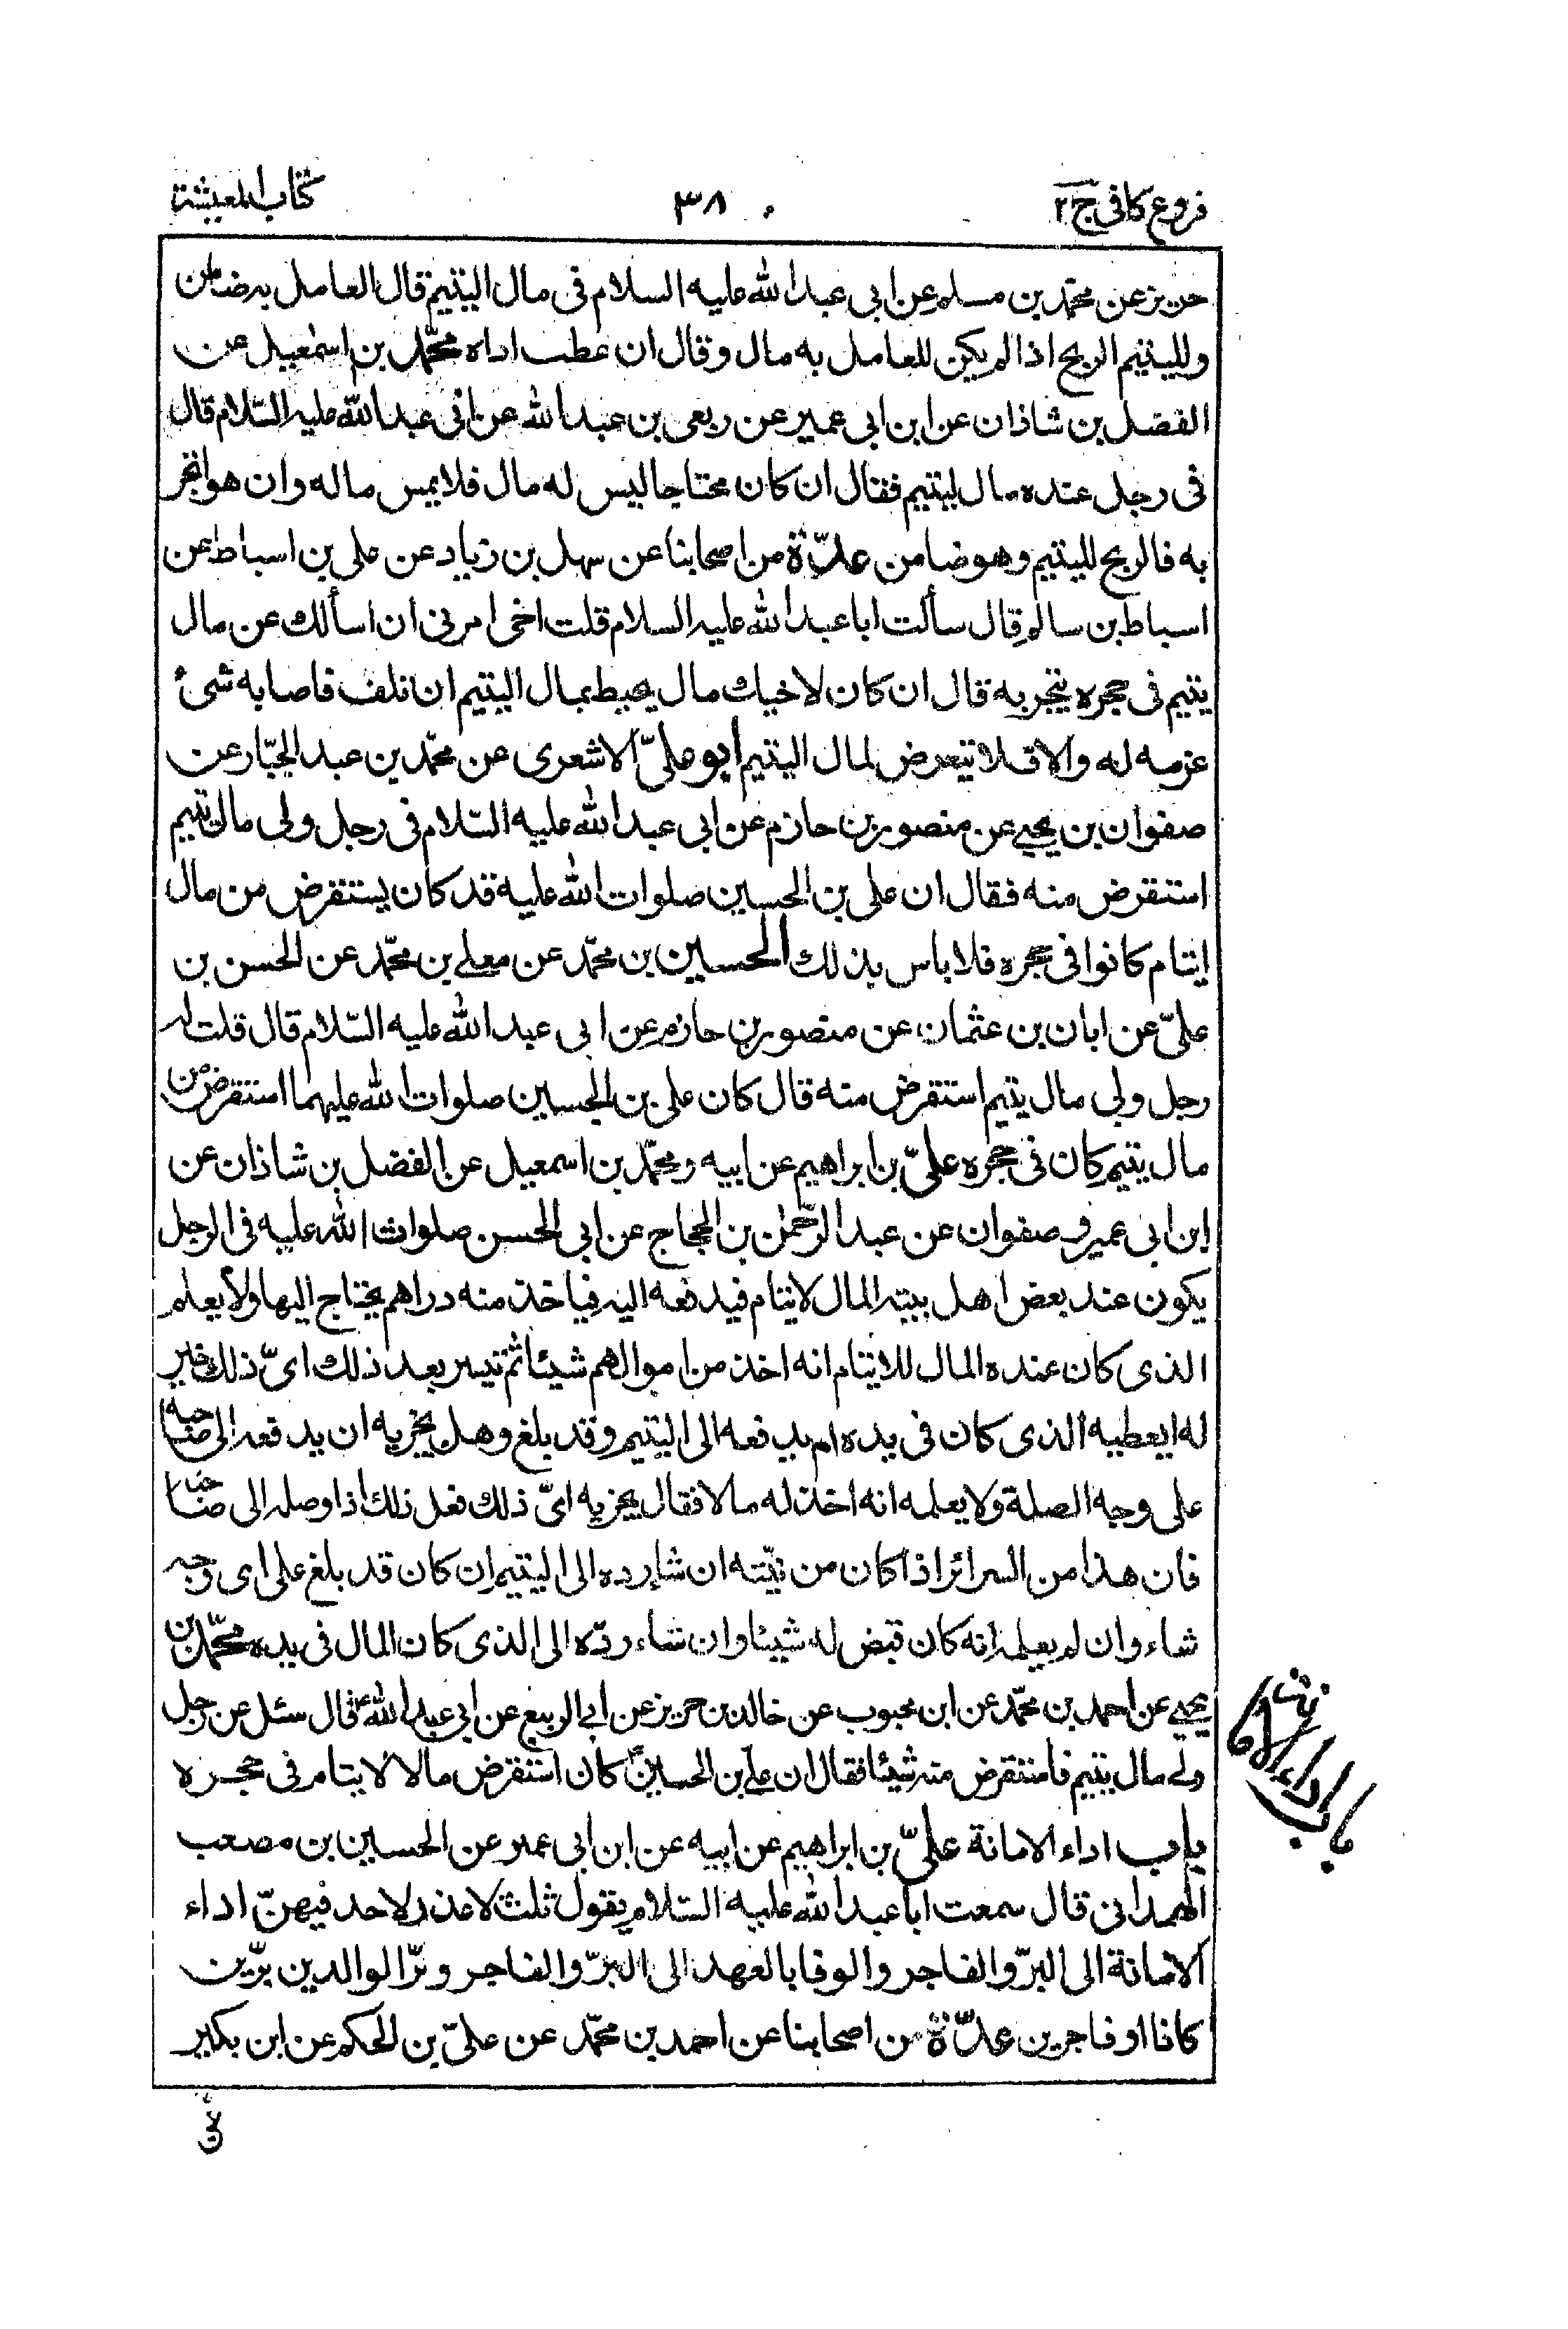 فروع كافى ج ٢
٣٨
كتاب المعيشة
حريز عن محمد بن مسلم عن ابى عبد الله عليه السلام فى مال اليتيم قال العامل به ضامن
ولليتيم الربح اذا لم يكن للعامل به مال وقال ان عطب اداه محمّد بن اسمٰعيل عن
الفضل بن شاذان عن ابن ابى عمير عن ربعى بن عبد الله عن ابى عبد الله عليه السّلام قال
فى رجل عنده مال ليتيم فقال ان كان محتاجا ليس له مال فلا يمس ماله وان هو اتجر
به فالربح لليتيم وهو ضامن عدّة من اصحابنا عن سهل بن زياد عن على بن اسباط عن
اسباط بن سالم قال سألت ابا عبد الله عليه السلام قلت اخى امرنى ان اسألك عن مال
يتيم فى حجره يتجر به قال ان كان لاخيك مال يحيط بمال اليتيم ان تلف فاصابه شئ
غرمه له والا فلا يتعرض لمال اليتيم أبو علىّ الاشعرى عن محمّد بن عبد الجبّار عن
صفوان بن يحيى عن منصور بن حازم عن ابى عبد الله عليه السّلام فى رجل ولى مال يتيم
استقرض منه فقال ان على بن الحسين صلوات الله عليه قد كان يستقرض من مال
ايتام كانوا فى حجره فلا باس بذلك الحسين بن محمّد عن معلى بن محمّد عن الحسن بن
علىّ عن ابان بن عثمان عن منصور بن حازم عن ابى عبد الله عليه السّلام قال قلت له
رجل ولى مال يتيم استقرض منه قال كان على بن الحسين صلوات الله عليهما استقرض من
مال يتيم كان فى حجره علىّ بن ابراهيم عن ابيه ومحمّد بن اسمعيل عن الفضل بن شاذان عن
ابن ابى عمير و صفوان عن عبد الرّحمٰن بن الحجاج عن ابى الحسن صلوات الله عليه فى الرجل
يكون عند بعض اهل بيته المال لايتام فيدفعه اليه فياخذ منه دراهم يحتاج اليها ولا يعلم
الذى كان عنده المال للايتام انه اخذ من اموالهم شيئا ثم تيسر بعد ذلك اىّ ذلك خير
له ايعطيه الذى كان فى يده ام يدفعه الى اليتيم وقد بلغ وهل يجزيه ان يدفعه الى صاحبه
على وجه الصلة ولا يعلمه انه اخذ له مالا فقال يجزيه اىّ ذلك فعل ذلك اذا وصله الى صاحبه
فان هذا من السرائر اذا كان من نيّته ان شاء رده الى اليتيم ان كان قد بلغ على اى وجه
شاء وان لم يعلمه انه كان قبض له شيئا وان شاء ردّه الى الذى كان المال فى يده محمّد بن
يحيى عن احمد بن محمّد عن ابن محبوب عن خالد بن حريز عن ابى الربيع عن ابى عبد الله ع قال سئل عن رجل
ولى مال يتيم فاستقرض منه شيئا فقال ان على بن الحسين ع كان استقرض مالا لايتام فى حجره
باب اداء الامانة علىّ بن ابراهيم عن ابيه عن ابن ابى عمير عن الحسين بن مصعب
الهمدانى قال سمعت ابا عبد الله عليه السّلام يقول ثلث لا عذر لاحد فيهنّ اداء
الامانة الى البرّ والفاجر والوفا بالعهد الى البرّ والفاجر وبرّ الوالدين برّين
كانا او فاجرين عدّة من اصحابنا عن احمد بن محمّد عن علىّ بن الحكم عن ابن بكير
باب اداء الامانة